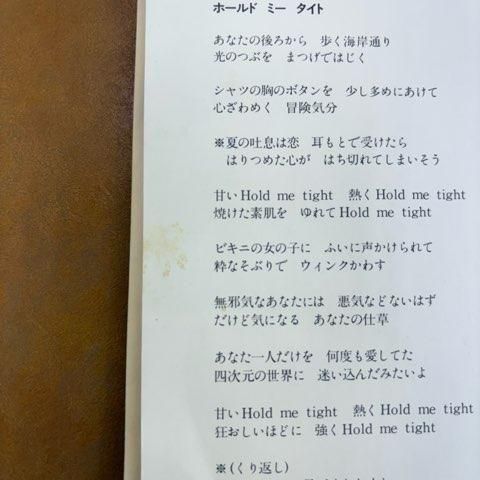 ホールド ミー タイト
あなたの後ろから 歩く海岸通り
光のつぶを まつげではじく
シャツの胸のボタンを 少し多めにあけて
心ざわめく 冒険気分
※夏の吐息は恋 耳もとで受けたら
はりつめた心が はち切れてしまいそう
甘いHold me tight 熱くHold me tight
焼けた素肌を ゆれてHold me tight
ビキニの女の子に ふいに声かけられて
粋なそぶりで ウィンクかわす
無邪気なあなたには 悪気などないはず
だけど気になる あなたの仕草
あなた一人だけを 何度も愛してた
四次元の世界に 迷い込んだみたいよ
甘いHold me tight 熱くHold me tight
狂おしいほどに 強くHold me tight
※(くり返し)